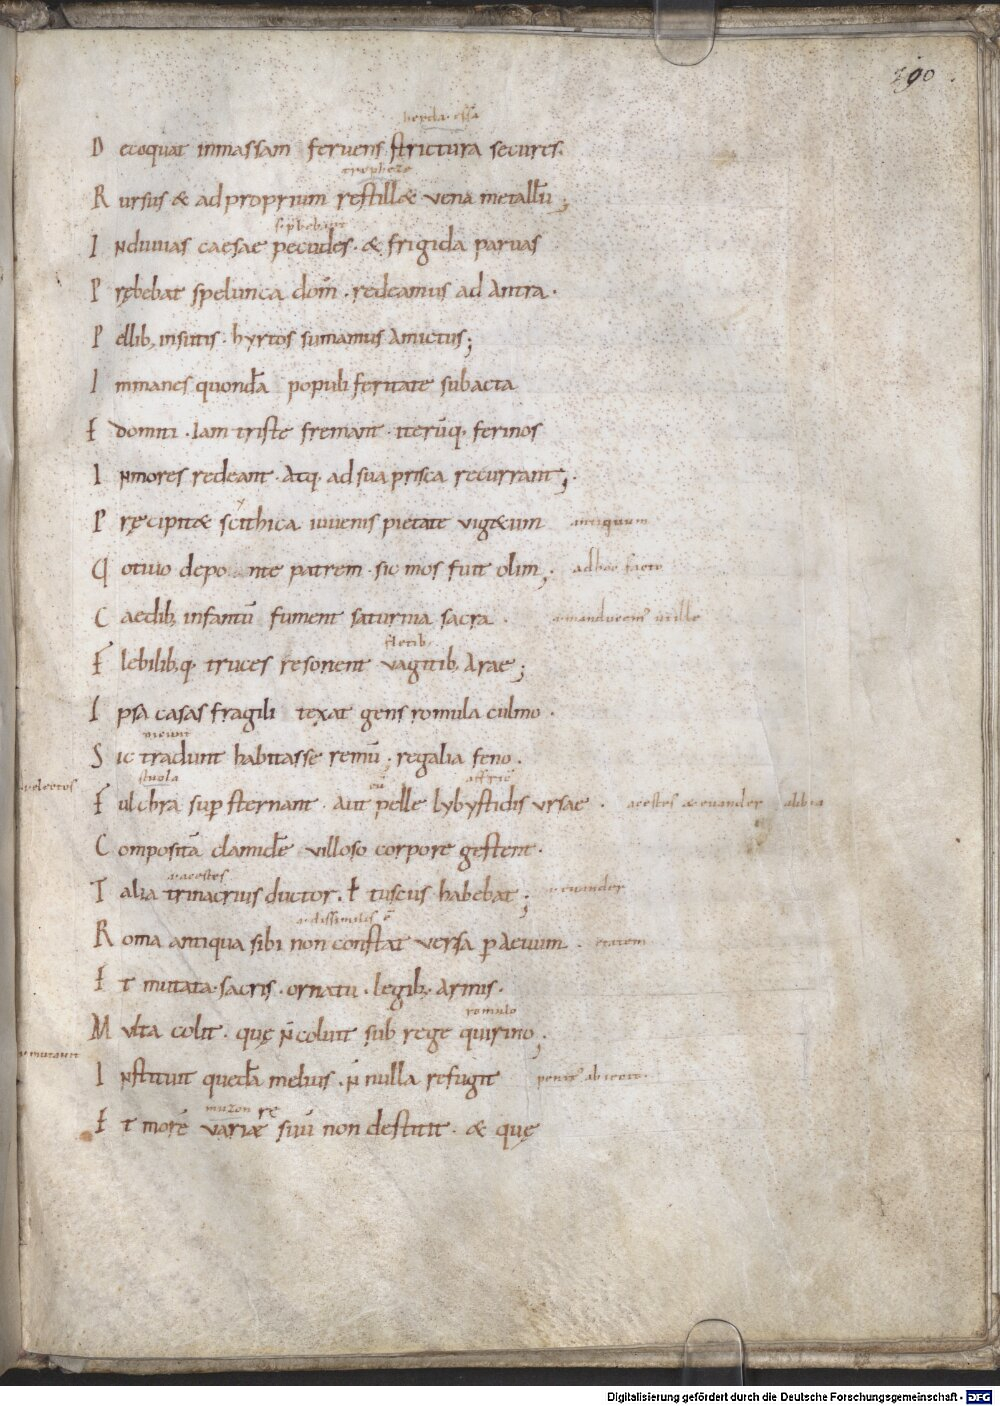 190.
D ecoquat inmassam feruens strictura secures.
R ursus & adproprium restillæ vena metallū;
I nduuias caesae pecudes. & frigida paruas
P rębebat spelunca dom̄. redeamus ad Antra.
P ellib; insutis. hyrtos sumamus Amictus;
I mmanes quondā populi feritate subacta
E domiti. Iam triste fremant. iterūq. ferinos
I nmores redeant. Atq. ad sua prisca recurrant;.
P ręcipitæ scithica iuuenis pietate vig&um antiquum
Q otiuo depo nte patrem. sic mos fuit olim;. adhoc facto
C aedib; infantū fument saturnia sacra.
fletib;
F lebilib;q. truces resonent vagitib; Arae;
I psa casas fragili texat gens romula culmo.
S ic tradunt habitasse remū; regalia feno.
F ulchra sup sternant. Aut pelle lybystidis vrsae. acestes & euander
C ompositā clamidē villoso corpore gestent.
acestes
T alia trinacrius ductor. ł tuscus habebat; euander
dissimilis ē
R oma antiqua sibi non constat versa p Aeuum.
E t mutata. sacris. ornatu. legib;. Armis.
romulo
M ulta colit. quę n̄ coluit sub rege quirino;.
I nstituit quedā melius. n̄ nulla refugit
rę
E t morē variæ suū non destitit. & quę
Digitalisierung gefördert durch die Deutsche Forschungsgemeinschaft - DFG